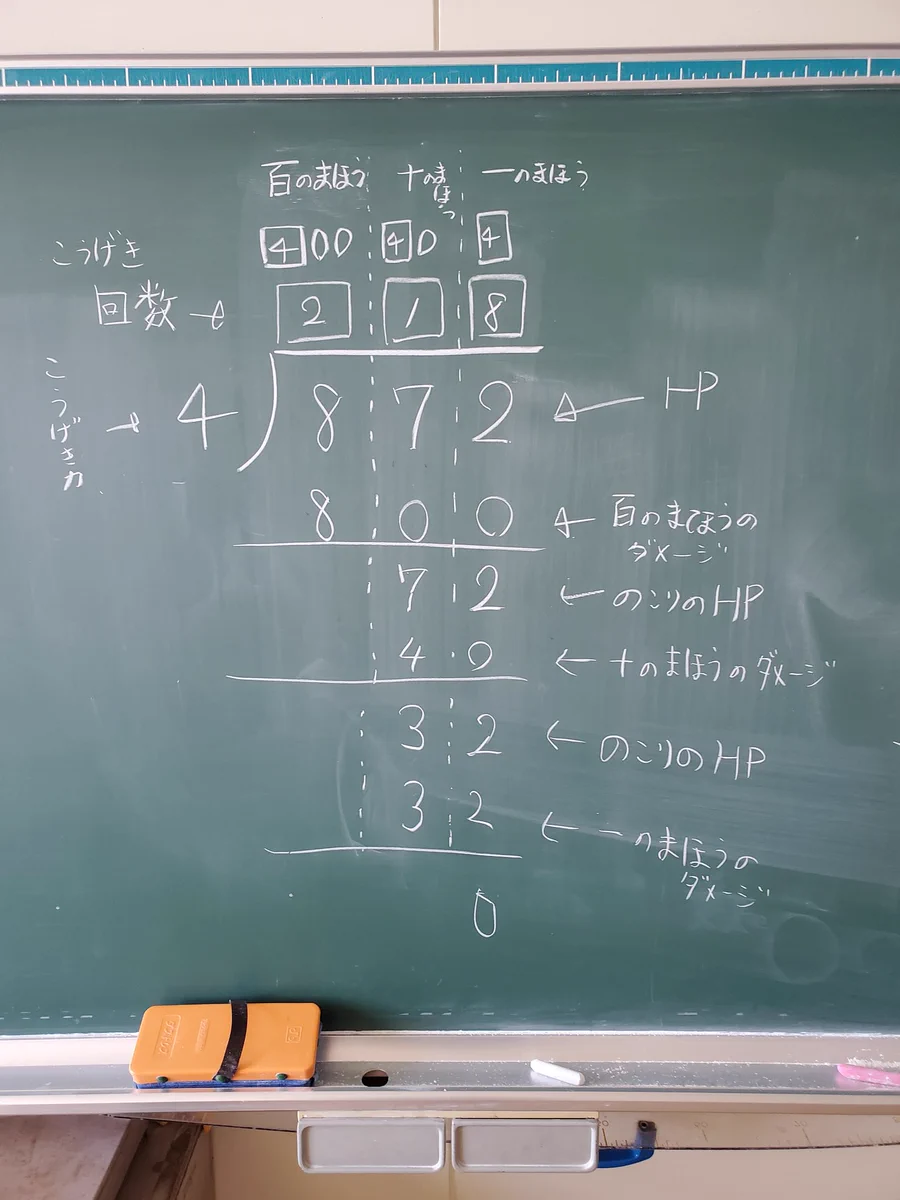 百のまほう 十のまほう 一のまほう
こうげき 400 40 4
回数→ 2 1 8
こうげき力→ 4 872 ← HP
800 ← 百のまほうのダメージ
72 ← のこりのHP
40 ← 十のまほうのダメージ
32 ← のこりのHP
32 ← 一のまほうのダメージ
0